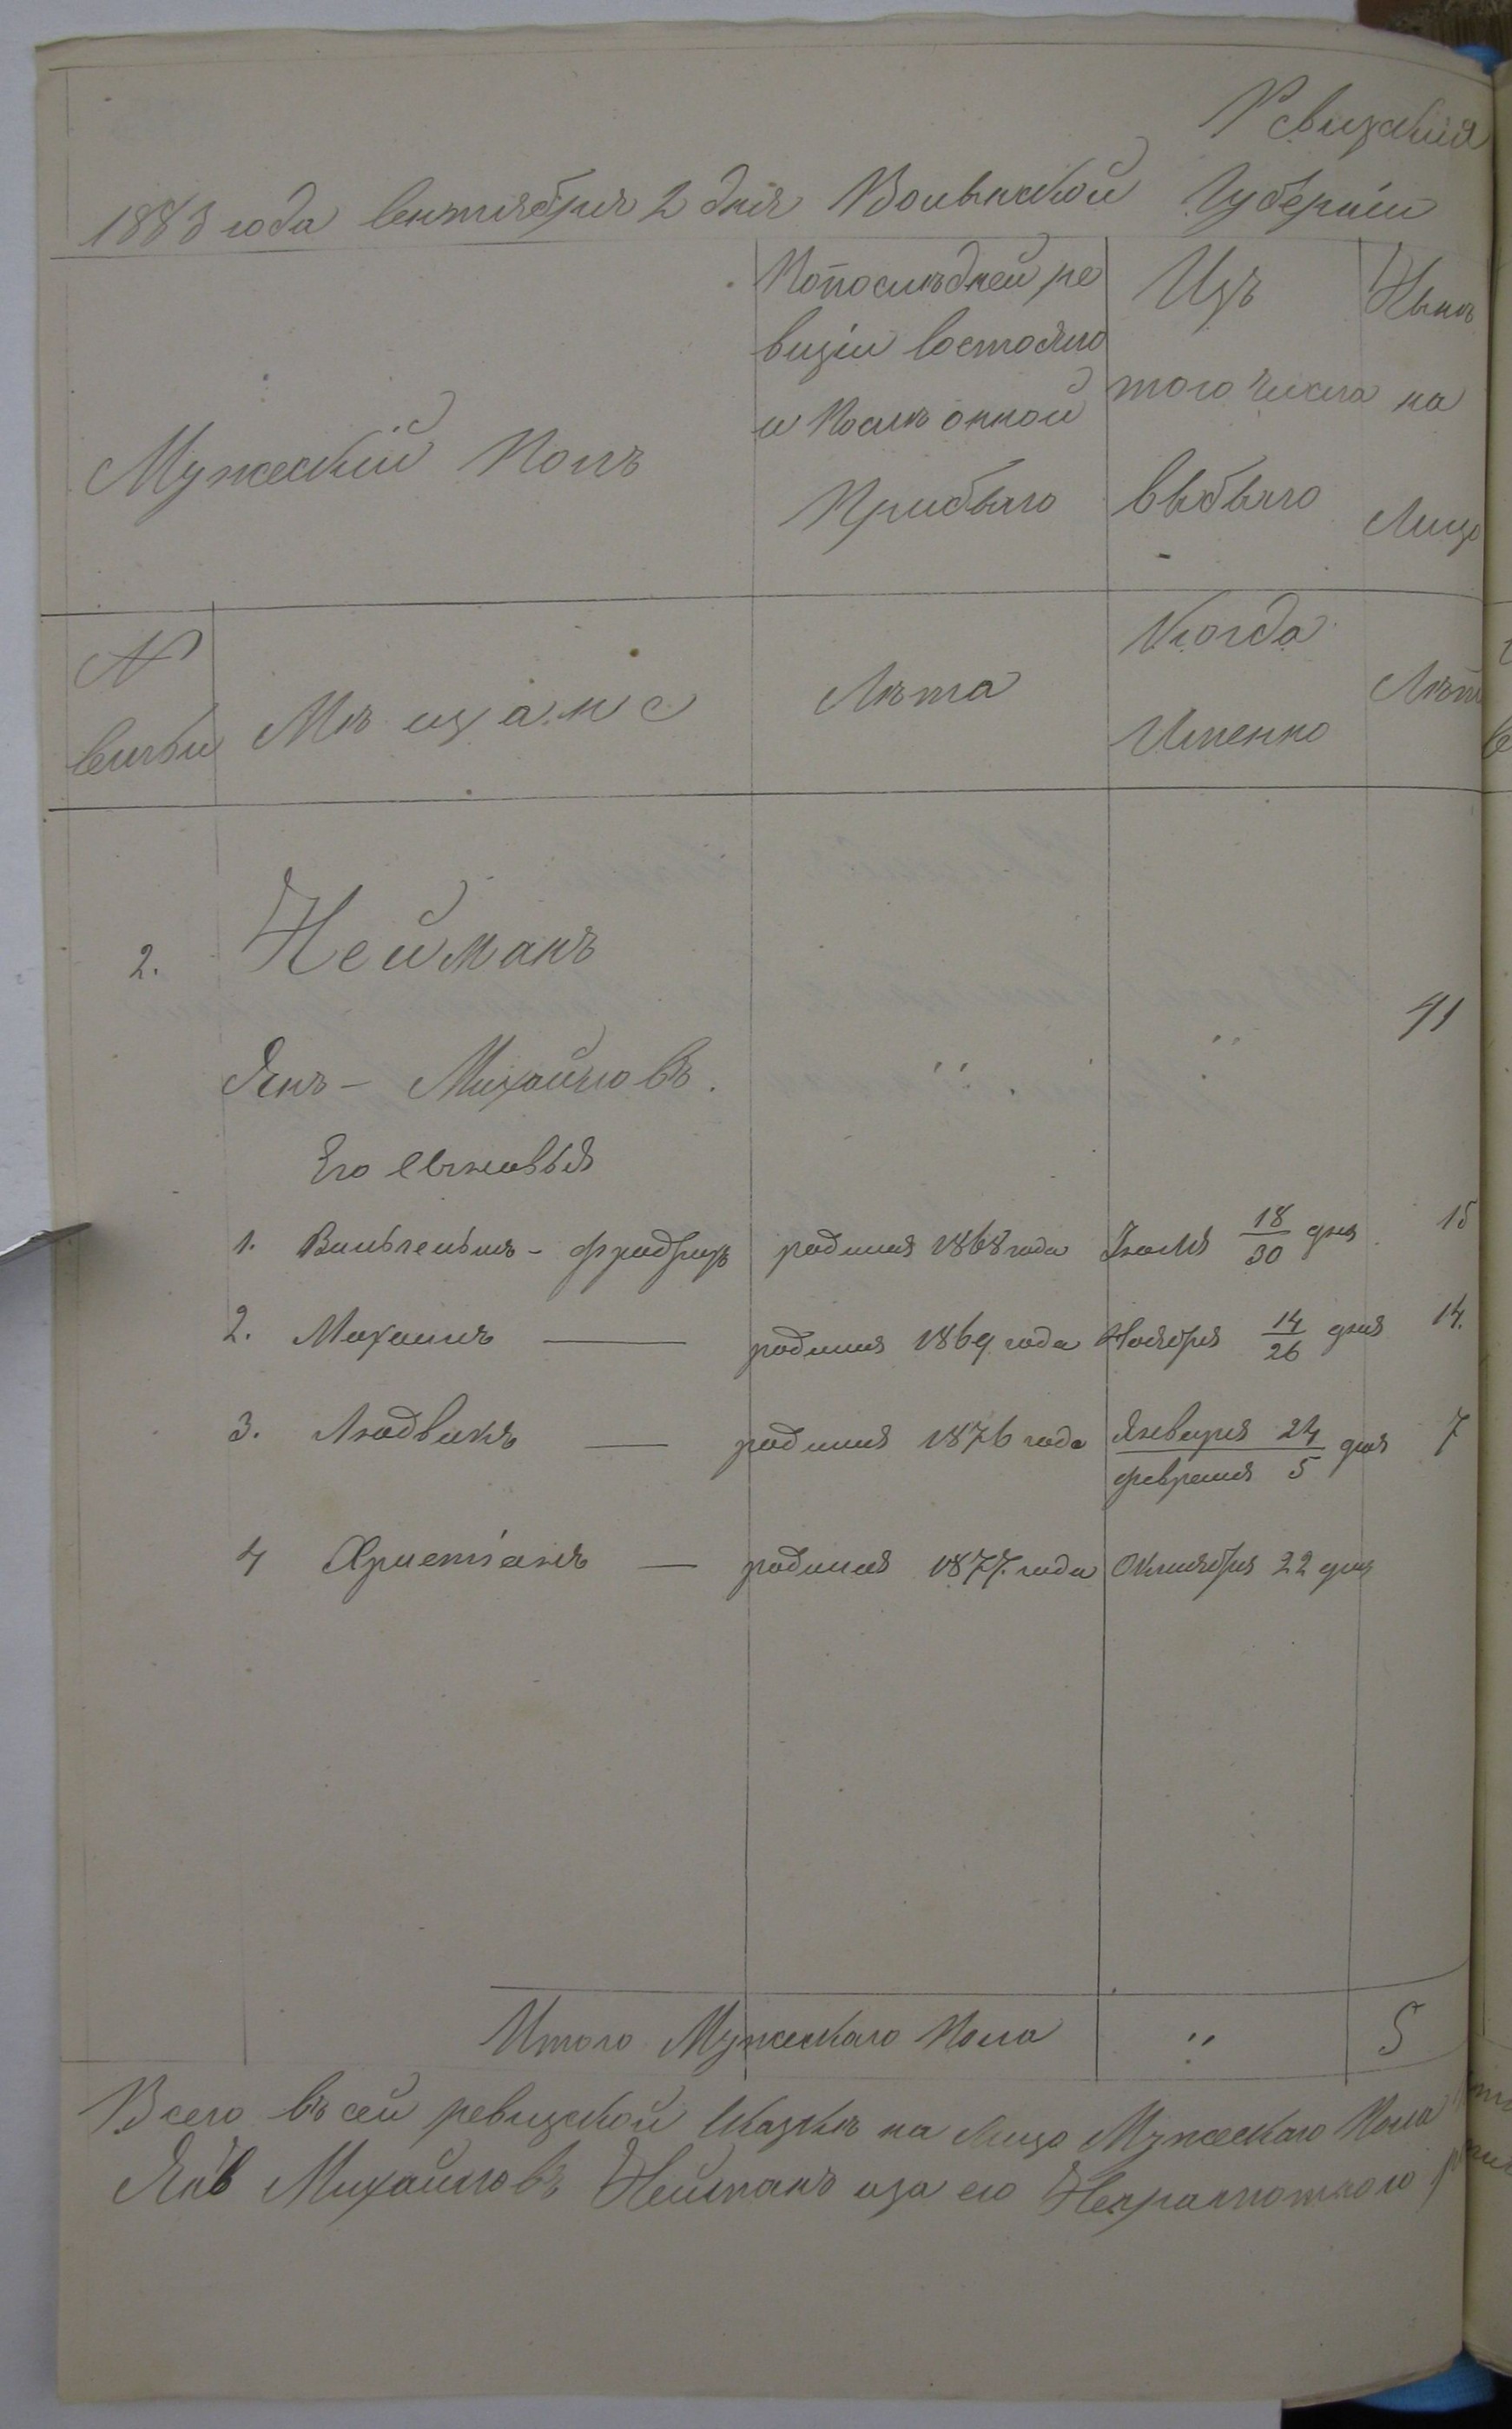 Ревизкия
1883 года Сентября 2 дня Волынской Губерніи
Мужескій Полъ
Попослѣдней ре
визіи Состояло
и Послѣ онной
Прибыло
Изъ
того Числа
выбыло
Нынѣ
на
Лицо
№
Семьи
Мѣщане
Лѣта
Когда
Именно
Лѣта
2. Нейманъ
Янъ - Михайловъ. " " 41
Его Сыновья
1. Вильгельмъ - Фридрихъ родился 1868 года Іюля 18/30 дня 15
2. Михаилъ — родился 1869 года Ноября 14/26 дня 14.
3. Людвикъ — родился 1876 года Января 24 / Февраля 5 дня 7
4 Христіанъ — родился 1877. года Октября 22 дня
Итого Мужескаго Пола " 5
Всего въ сей ревизской Сказкѣ на Лицо Мужескаго Пола
Янъ Михайловъ Нейманъ иза его Неграмотного